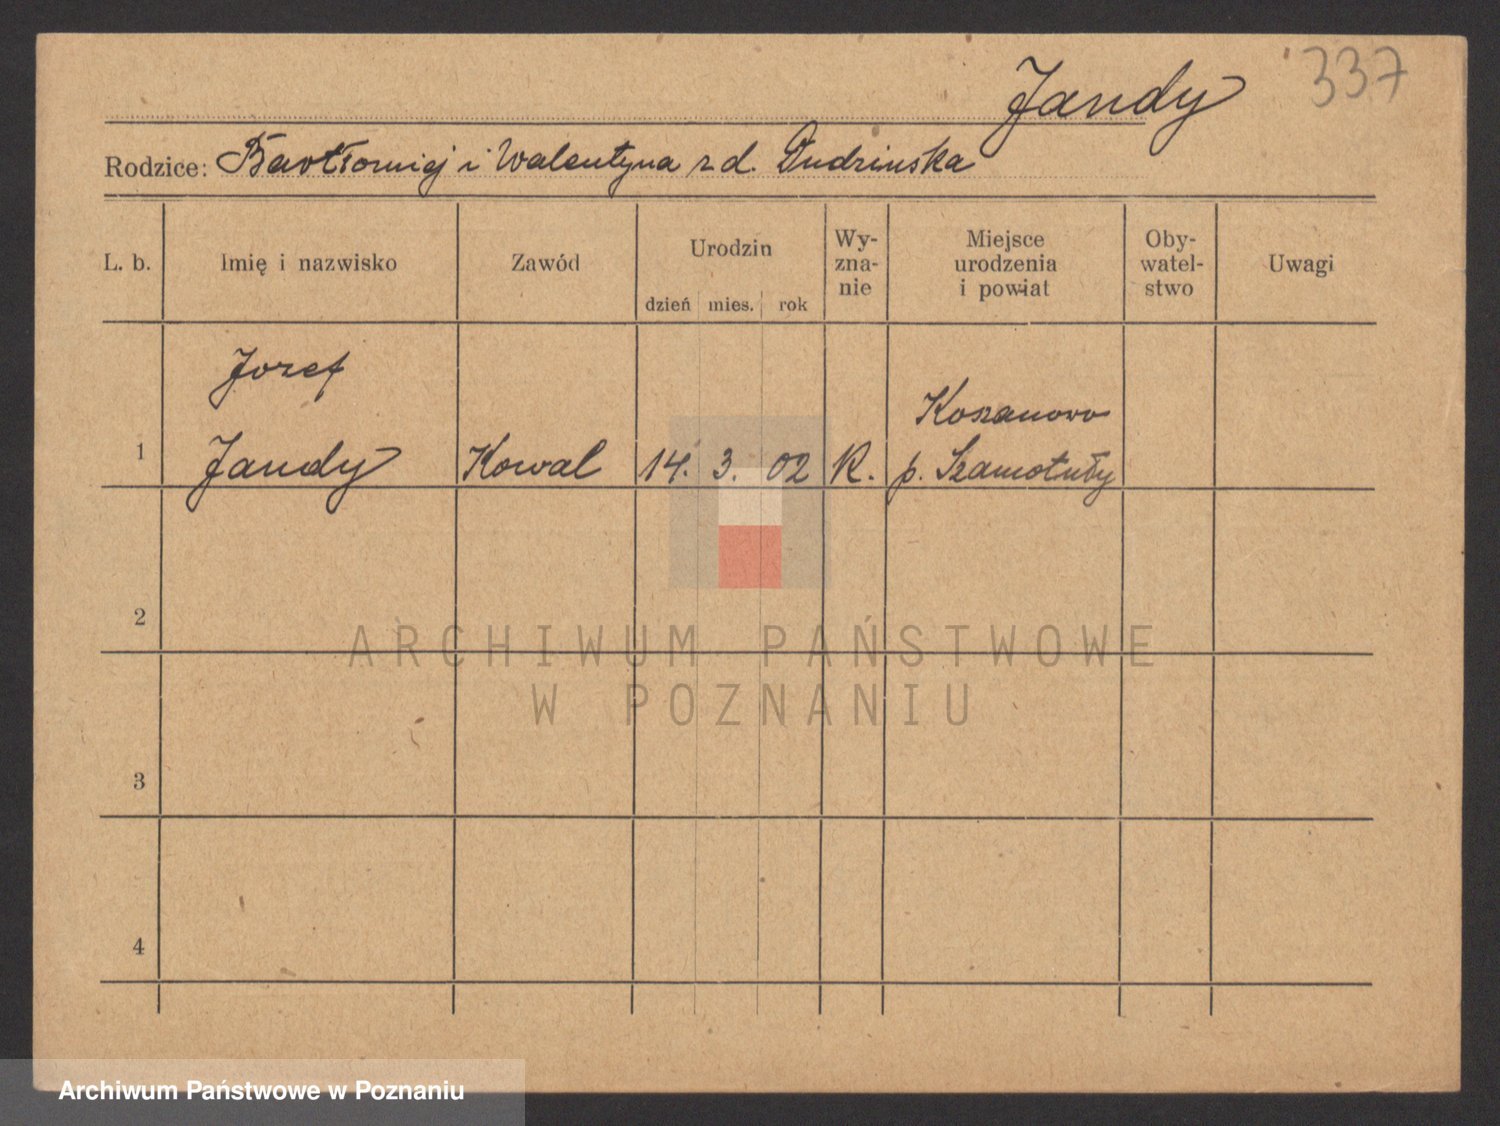 Jandy 337
Rodzice: Bartłomiej i Walentyna z d. Dudzinska
L. b. Imię i nazwisko Zawód Urodzin dzień mies. rok Wy-zna-nie Miejsce urodzenia i powiat Oby-watel-stwo Uwagi
Jozef
Koszanowo
1 Jandy Kowal 14. 3. 02 R. p. Szamotuły
2
ARCHIWUM PAŃSTWOWE
W POZNANIU
3
4
Archiwum Państwowe w Poznaniu